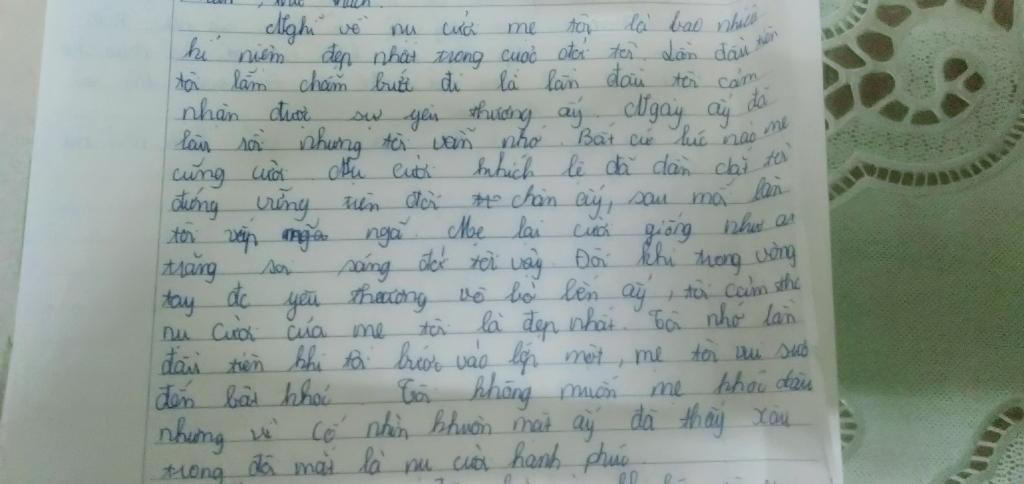 Nghĩ về nụ cười mẹ tôi là bao nhiêu
kỉ niệm đẹp nhất trong cuộc đời tôi. Lần đầu tiên
tôi lẫm chẫm bước đi là lần đầu tôi cảm
nhận được sự yêu thương ấy. Ngày ấy đã
lâu rồi nhưng tôi vẫn nhớ. Bất cứ lúc nào mẹ
cũng cười. Nụ cười khích lệ đã dẫn dắt tôi
đứng vững trên đôi chân ấy, sau mỗi lần
tôi vấp ngã. Mẹ lại cười giống như ai
trăng soi sáng đời tôi vậy. Đôi khi trong vòng
tay đc yêu thương vô bờ bến ấy, tôi cảm thấ
nụ cười của mẹ tôi là đẹp nhất. Tôi nhớ lần
đầu tiên khi tôi bước vào lớp một, mẹ tôi vui sướ
đến bật khóc. Tôi không muốn mẹ khóc đâu
nhưng vì cố nhìn khuôn mặt ấy đã thấy xâu
trong đôi mắt là nụ cười hạnh phúc.